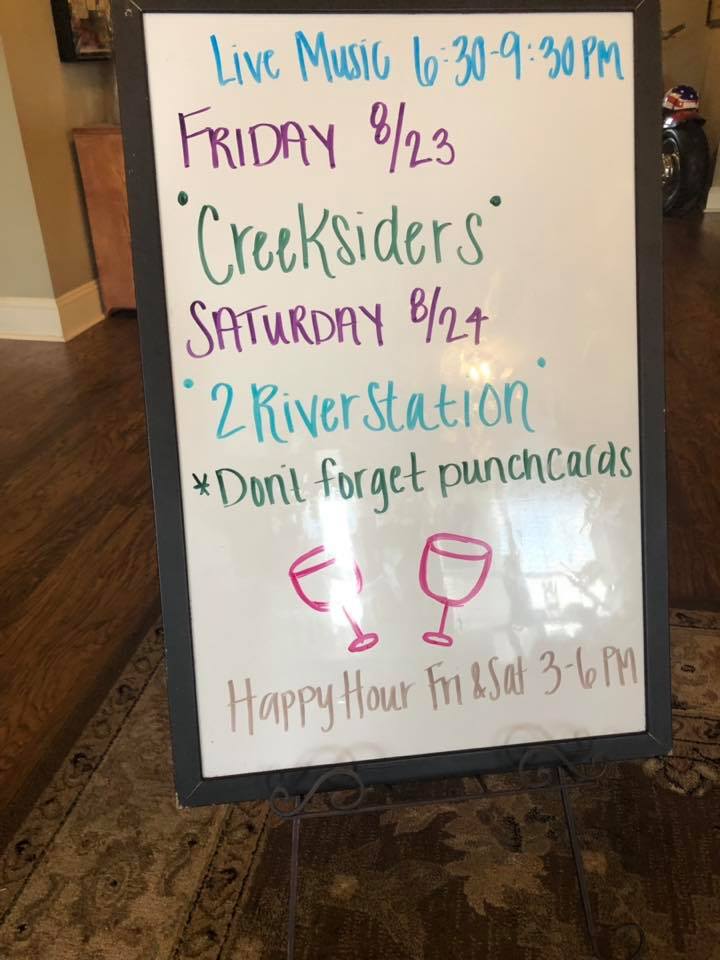 Live Music 6:30-9:30PM
FRIDAY 8/23
"Creeksiders"
SATURDAY 8/24
"2 River Station"
*Don't forget punchcards
Happy Hour Fri & Sat 3-6PM